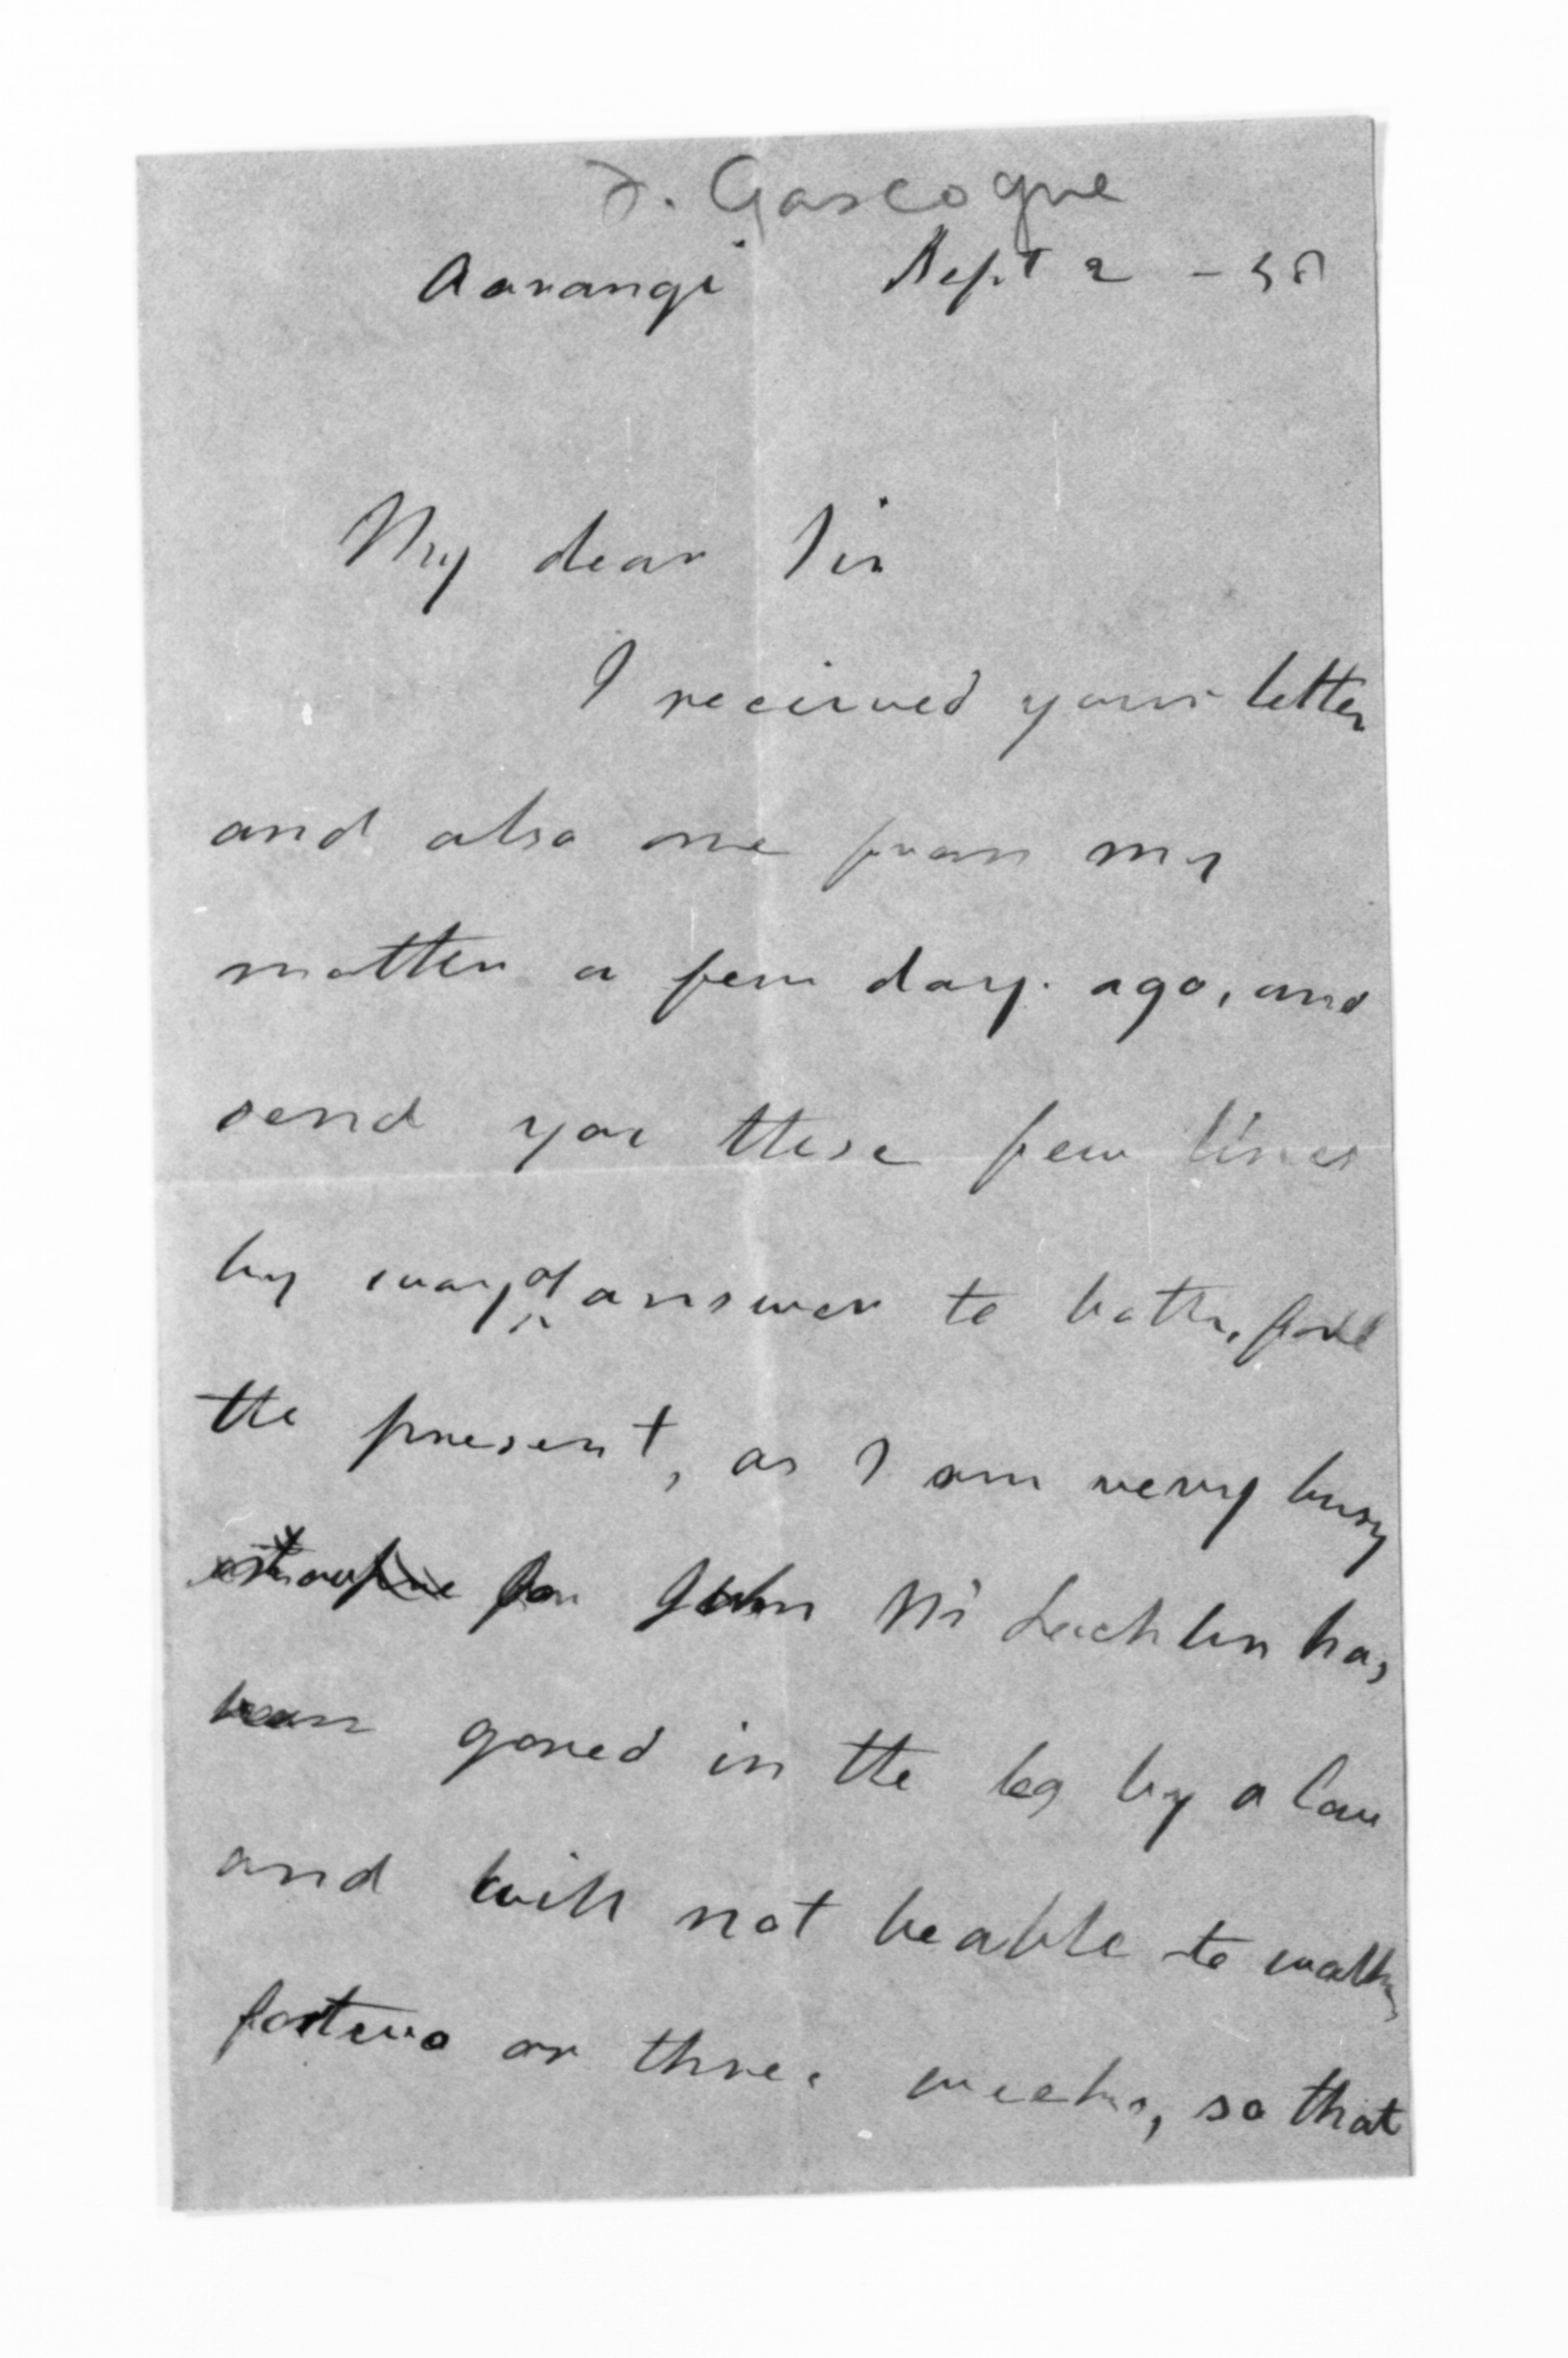 F. Gascogne
Aorangi Sept 2 - 58
My dear Sir
I received your letter
and also one from my
matter a few days ago, and
send you these few lines
by way of answer to both, for
the present, as I am very busy
for John McLachlin has
been gored in the leg by a Cow
and will not be able to walk
for two or three weeks, so that